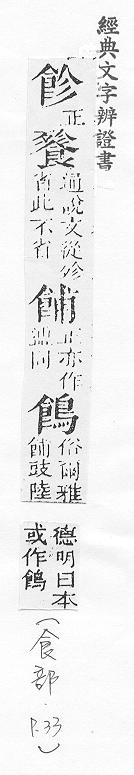 經典文字辨證書
飻 正
餮 通說文從殄省此不省
餔 正亦作同
俗爾雅餔鼓陸
德明曰本
或作
(食部.P.33)